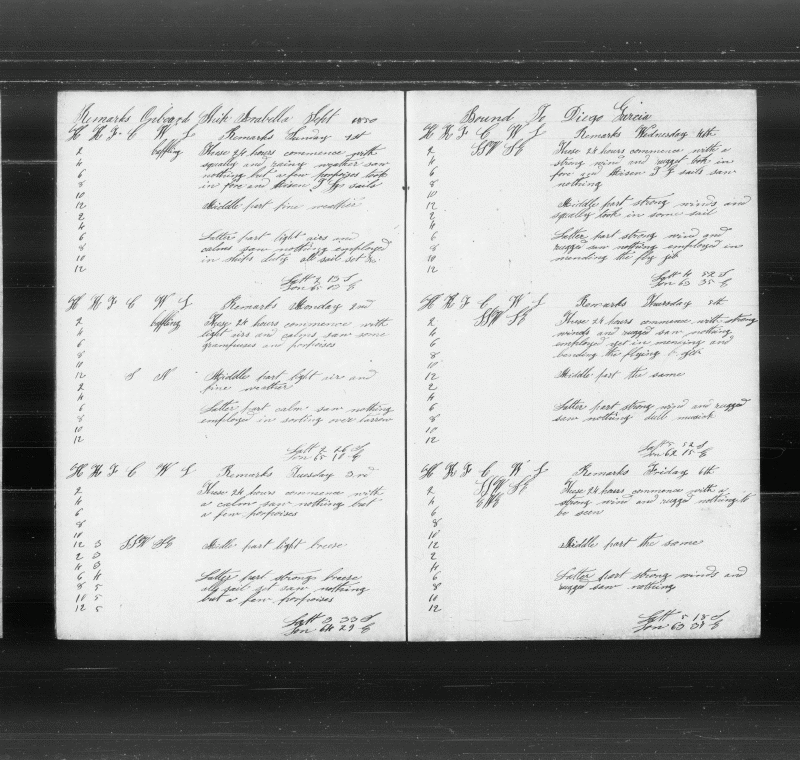 Remarks Onboard Ship Arabella Sept 1850
H K F C W L Remarks Sunday 1st
2 baffling These 24 hours commence with
4 squally and rainy weather saw
6 nothing but a few porpoises took
8 in fore and Misen T G sails
10
12 Middle part fine weather
2
4
6 Latter part light airs and
8 calms saw nothing employed
10 in ships duty all sail set
12
Latt 2 13 S
Lon 65 13 E
H K F C W L Remarks Monday 2nd
2 baffling These 24 hours commence with
4 light airs and calms saw some
6 grampuses and porpoises
8
10
12 S N Middle part light air and
2 fine weather
4
6 Latter part calm saw nothing
8 employed in
10
12
Latt 2 26 S
Lon 65 18 E
H K F C W L Remarks Tuesday 3rd
2 These 24 hours commence with
4 a calm saw nothing but
6 a few porpoises
8
10
12 3 SSW SE Midle part light breese
2 3
4 3
6 4 Latter part strong breese
8 5 all sail set saw nothing
10 5 but a few porpoises
12 5
Latt 3 33 S
Lon 64 29 E
Bound To Diego Garcia
H K F C W L Remarks Wednesday 4th
2 SSW SE These 24 hours commence with a
4 strong wind and rugged took in
6 fore and Misen T G sails saw
8 nothing
10
12 Middle part strong winds and
2 squally took in some sail
4
6 Latter part strong wind and
8 rugged saw nothing employed in
10 mending the fly jib
12
Latt 4 52 S
Lon 63 35 E
H K F C W L Remarks Thursday 5th
2 SSW SE These 24 hours commence with strong
4 winds and rugged saw nothing
6 employed yet in mending and
8 bending the flying
10
12 Middle part the same
2
4
6 Latter part strong wind and rugged
8 saw nothing dull musick
10
12
Latt 5 52 S
Lon 62 15 E
H K F C W L Remarks Friday 6th
2 SSW SE These 24 hours commence with a
4 ENE strong wind and rugged nothing to
6 be seen
8
10
12 Middle part the same
2
4
6 Latter part strong winds and
8 rugged saw nothing
10
12
Latt 5 18 S
Lon 63 31 E